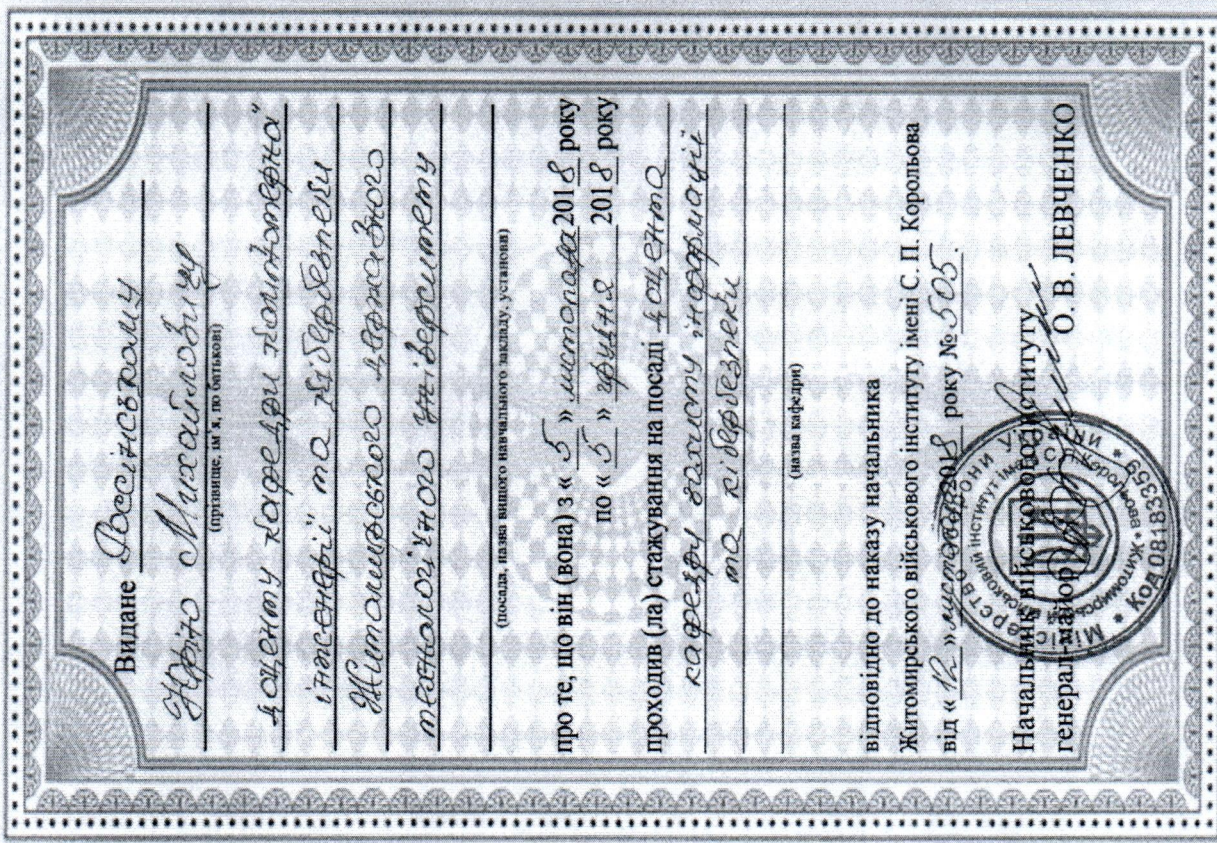 Видане Россінському
Юрію Михайловичу
(прізвище, ім'я, по батькові)
доценту кафедри комп'ютерної
інженерії та кібербезпеки
Житомирського державного
технологічного університету
(посада, назва вищого навчального закладу, установи)
про те, що він (вона) з « 5 » листопада 2018 року
по « 5 » грудня 2018 року
проходив (ла) стажування на посаді доцента
кафедри захисту інформації
та кібербезпеки
(назва кафедри)
відповідно до наказу начальника
Житомирського військового інституту імені С. П. Корольова
від « 12 » листопада 2018 року № 505
Начальник військового інституту
генерал-майор О. В. ЛЕВЧЕНКО
Міністерство оборони України
Житомирський військовий інститут імені С.П.Корольова
Код 08183359